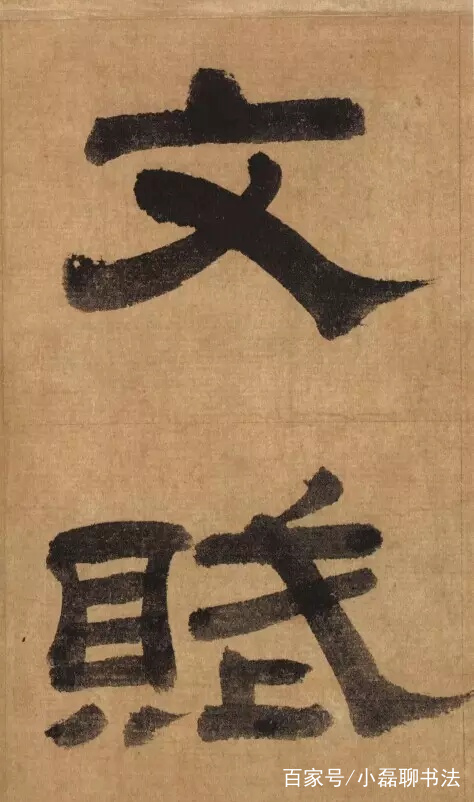 文
賦
百家号/小磊聊书法